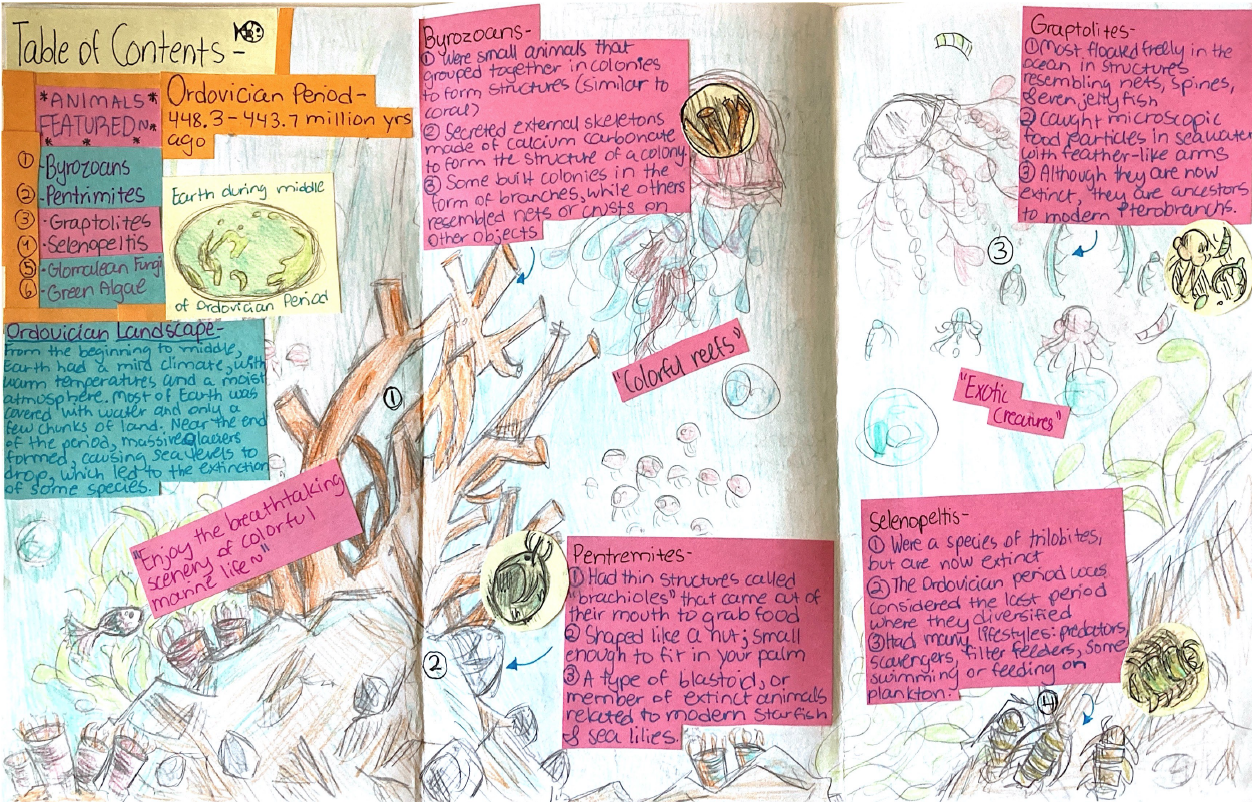 Table of Contents-
*ANIMALS*
FEATURED~
* * *
① -Byrozoans
② -Pentrimites
③ -Graptolites
④ -Selenopeltis
⑤ -Glomalean Fungi
⑥ -Green Algae
Ordovician Period-
448.3-443.7 million yrs
ago
Earth during middle
of Ordovician Period
Ordovician Landscape-
From the beginning to middle,
earth had a mild climate, with
warm temperatures and a moist
atmosphere. Most of Earth was
covered with water and only a
few chunks of land. Near the end
of the period, massive glaciers
formed, causing sea levels to
drop, which led to the extinction
of some species.
"Enjoy the breathtaking
scenery of colorful
marine life~"
①
Byrozoans-
① Were small animals that
grouped together in colonies
to form structures (similar to
coral)
② Secreted external skeletons
made of calcium carbonate
to form the structure of a colony.
③ Some built colonies in the
form of branches, while others
resembled nets or crusts on
other objects.
"Colorful reefs"
②
Pentremites-
① Had thin structures called
"brachioles" that came out of
their mouth to grab food
② Shaped like a nut; small
enough to fit in your palm
③ A type of blastoid, or
member of extinct animals
related to modern starfish
& sea lilies.
Graptolites-
① Most floated freely in the
ocean in structures
resembling nets, spines,
& even jellyfish
② Caught microscopic
food particles in seawater
with feather-like arms
③ Although they are now
extinct, they are ancestors
to modern pterobranchs.
③
"Exotic
Creatures"
Selenopeltis-
① Were a species of trilobites,
but are now extinct
② The Ordovician period was
considered the last period
where they diversified
③ Had many lifestyles: predators,
scavengers, filter feeders, some
swimming or feeding on
plankton.
④